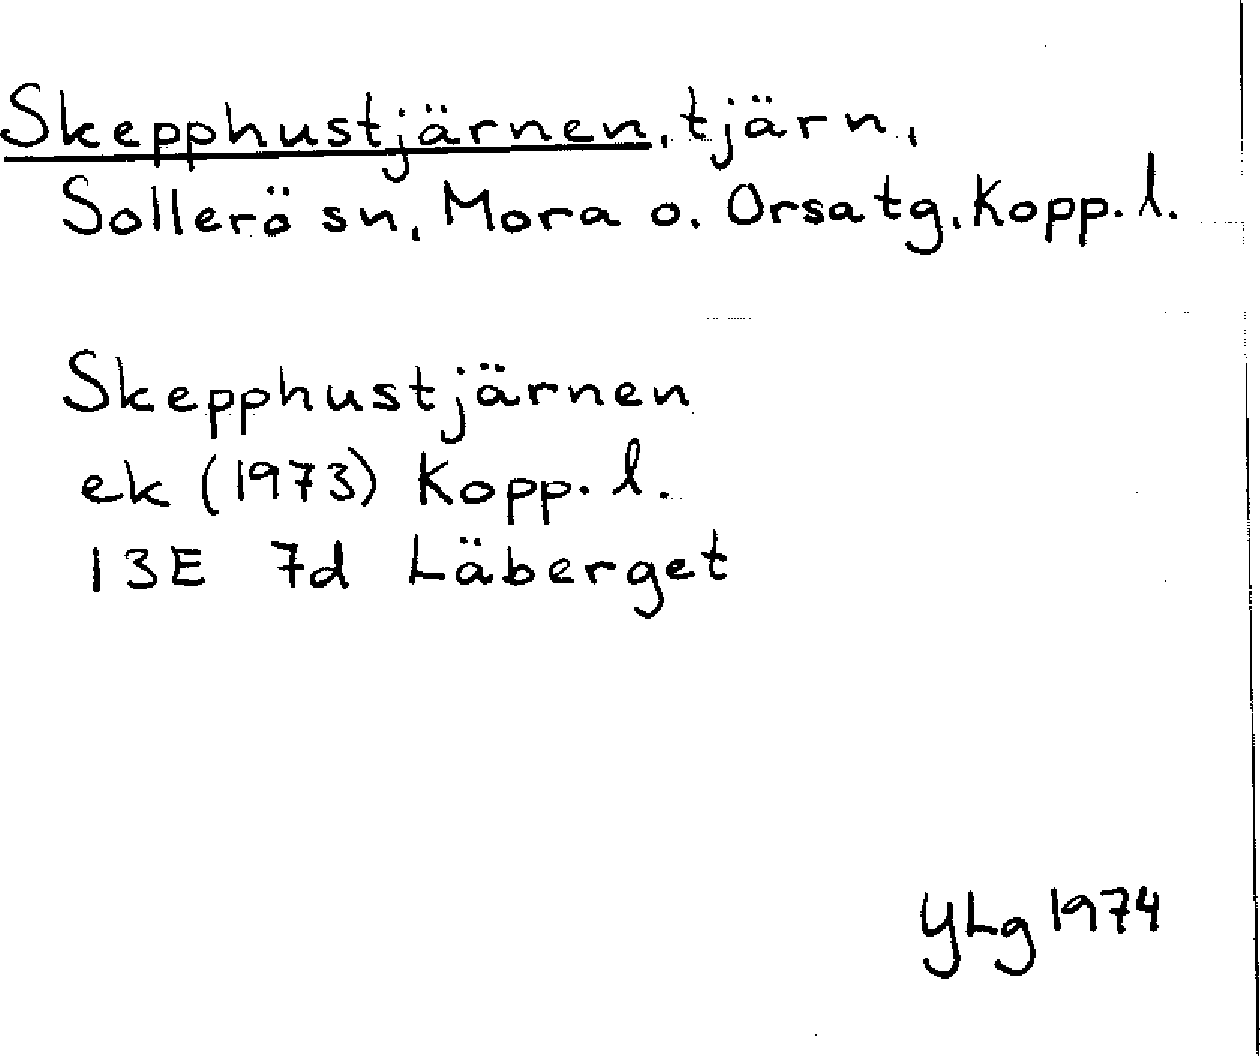 Skepphustjärnen, tjärn,
Sollerö sn, Mora o. Orsa tg, Kopp. l.
Skepphustjärnen
ek (1973) Kopp. l.
13E 7d Läberget
YLg 1974